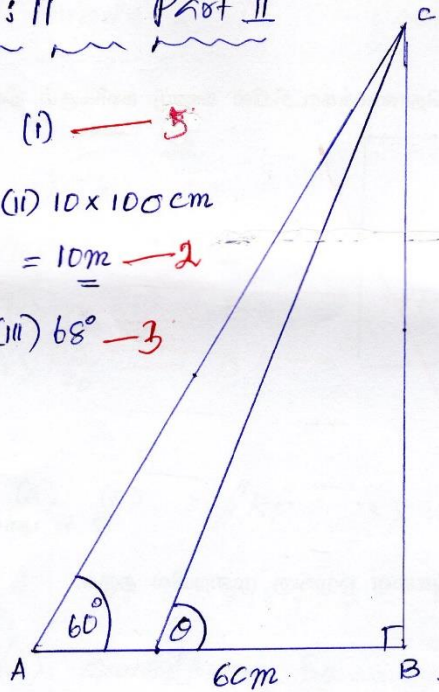 11 Part II
C
(i) — 5
(ii) 10 × 100 cm
= 10m — 2
(iii) 68° — 3
60°
θ
A
6cm.
B